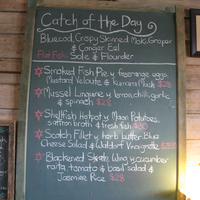 Catch of the Day
Bluecod, Crispy Skinned Moki, Groper
& Conger Eel
Flat Fish: Sole & Flounder
Smoked Fish Pie w free range eggs,
Mustard Veloute & Kumara Mash $28
Mussel Linguine w lemon, chilli, garlic
& spinach $28
Shellfish Hotpot w Maori Potatoes,
saffron broth & fresh fish $30
Scotch Fillet w herb butter, Blue
Cheese Salad & Waldorf Vinaigrette
Blackened Skate Wing w cucumber
raita, tomato & basil salad &
Jasmine Rice $28